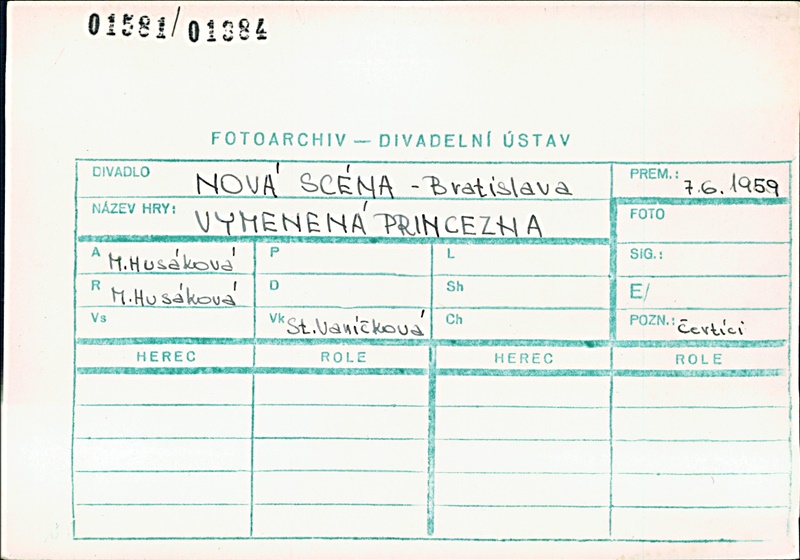 01581/01384
FOTOARCHIV — DIVADELNÍ ÚSTAV
DIVADLO NOVÁ SCÉNA - Bratislava PREM.: 7.6.1959
NÁZEV HRY: VYMENENÁ PRINCEZNA FOTO
A M.Husáková P L SIG.:
R M.Husáková D Sh E/
Vs Vk St.Vaníčková Ch POZN.: Čertíci
HEREC ROLE HEREC ROLE